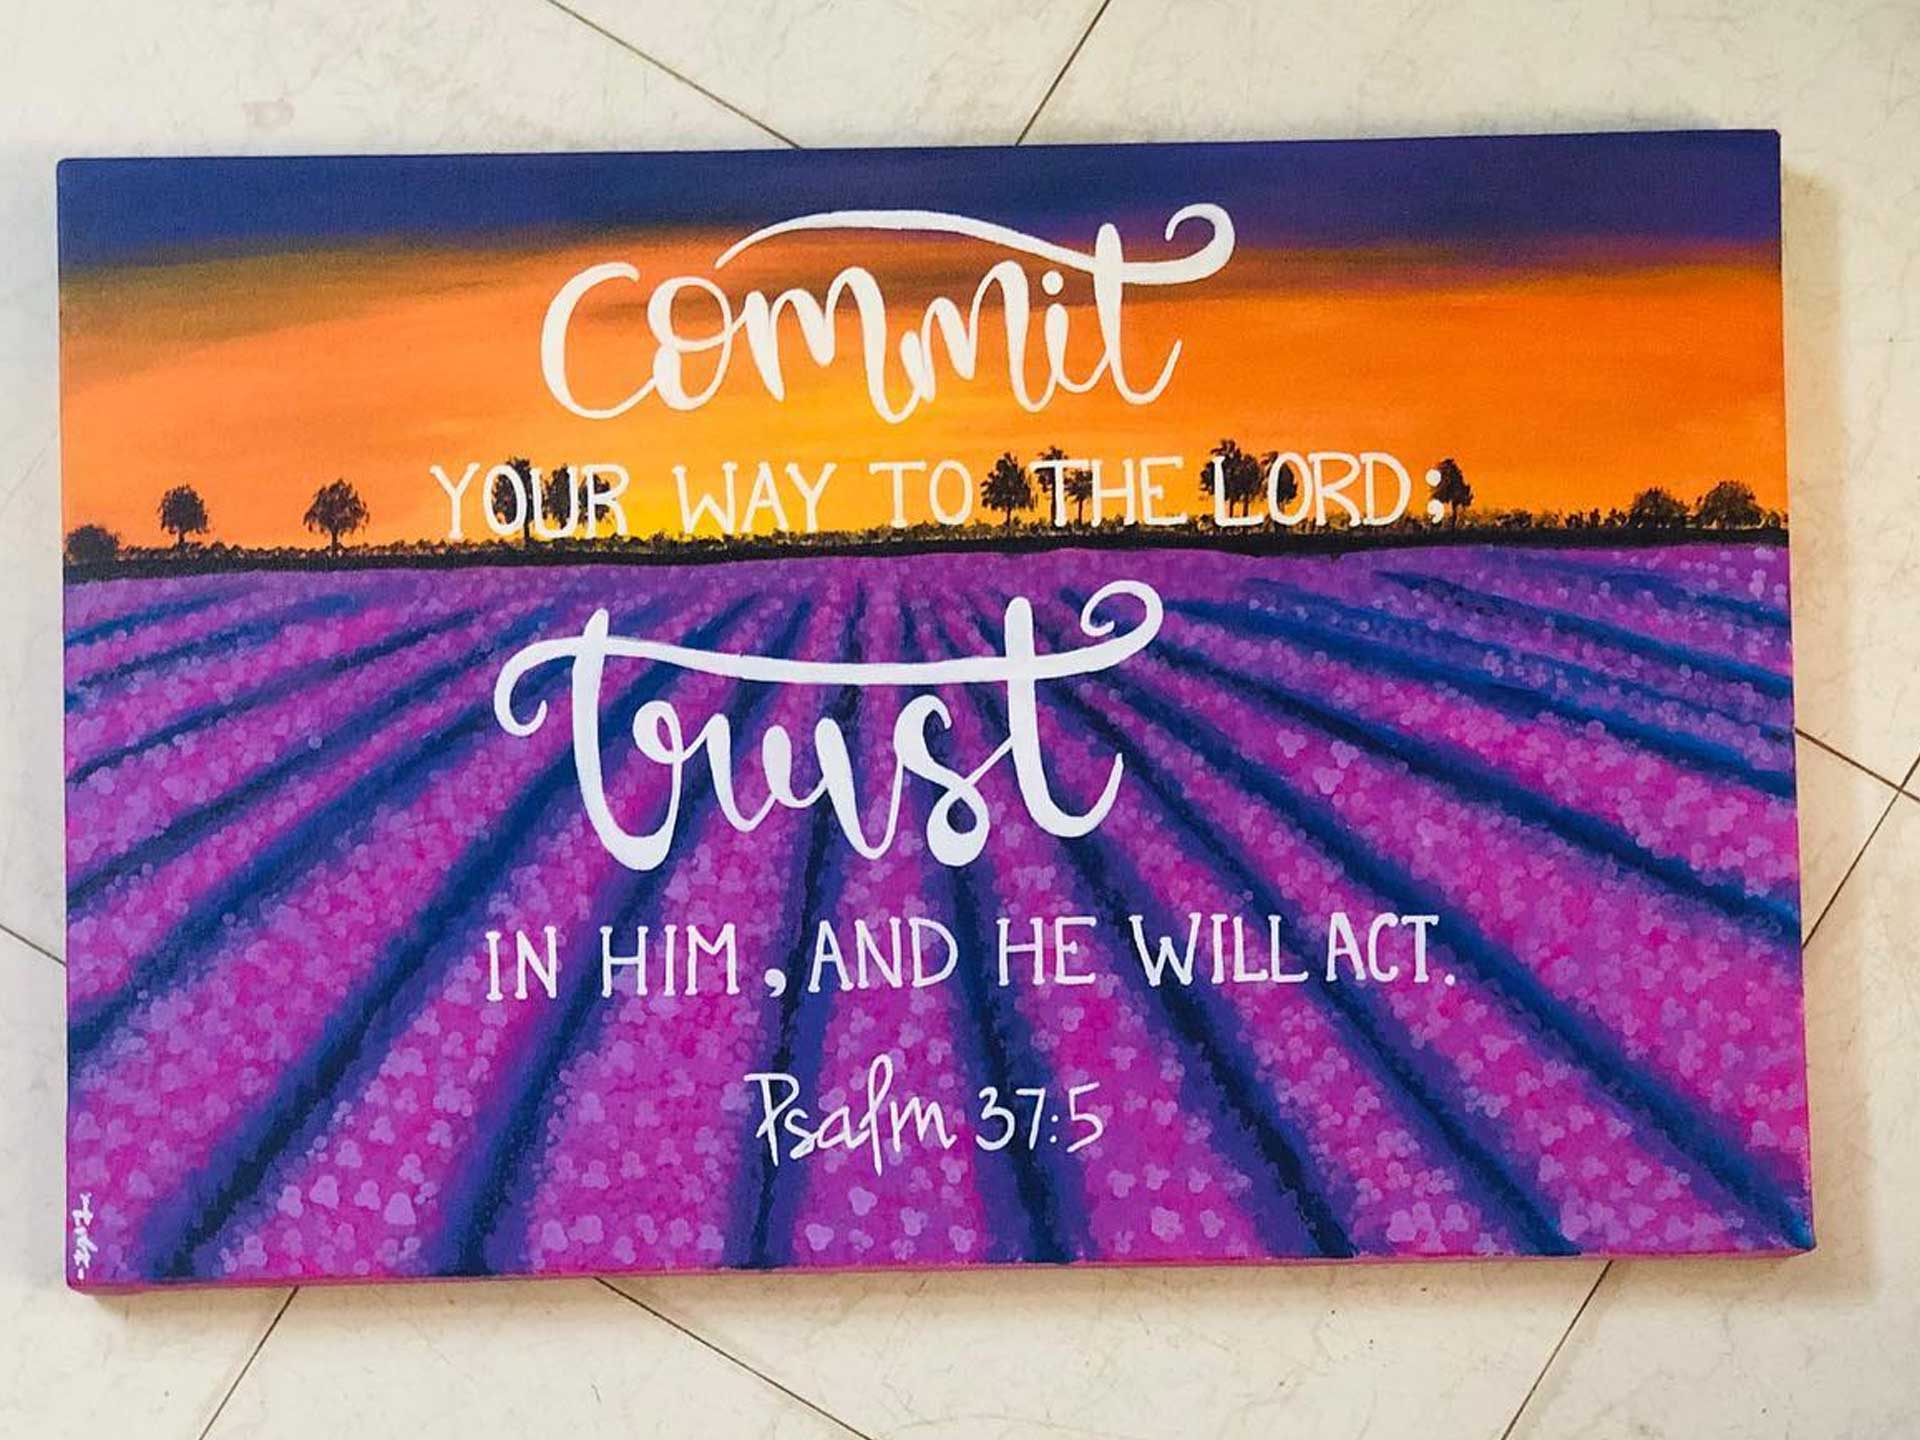 commit
YOUR WAY TO THE LORD;
trust
IN HIM, AND HE WILL ACT.
Psalm 37:5